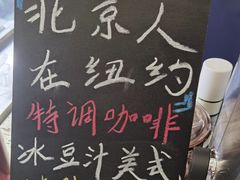 北京人
在纽约
特调咖啡
冰豆汁美式